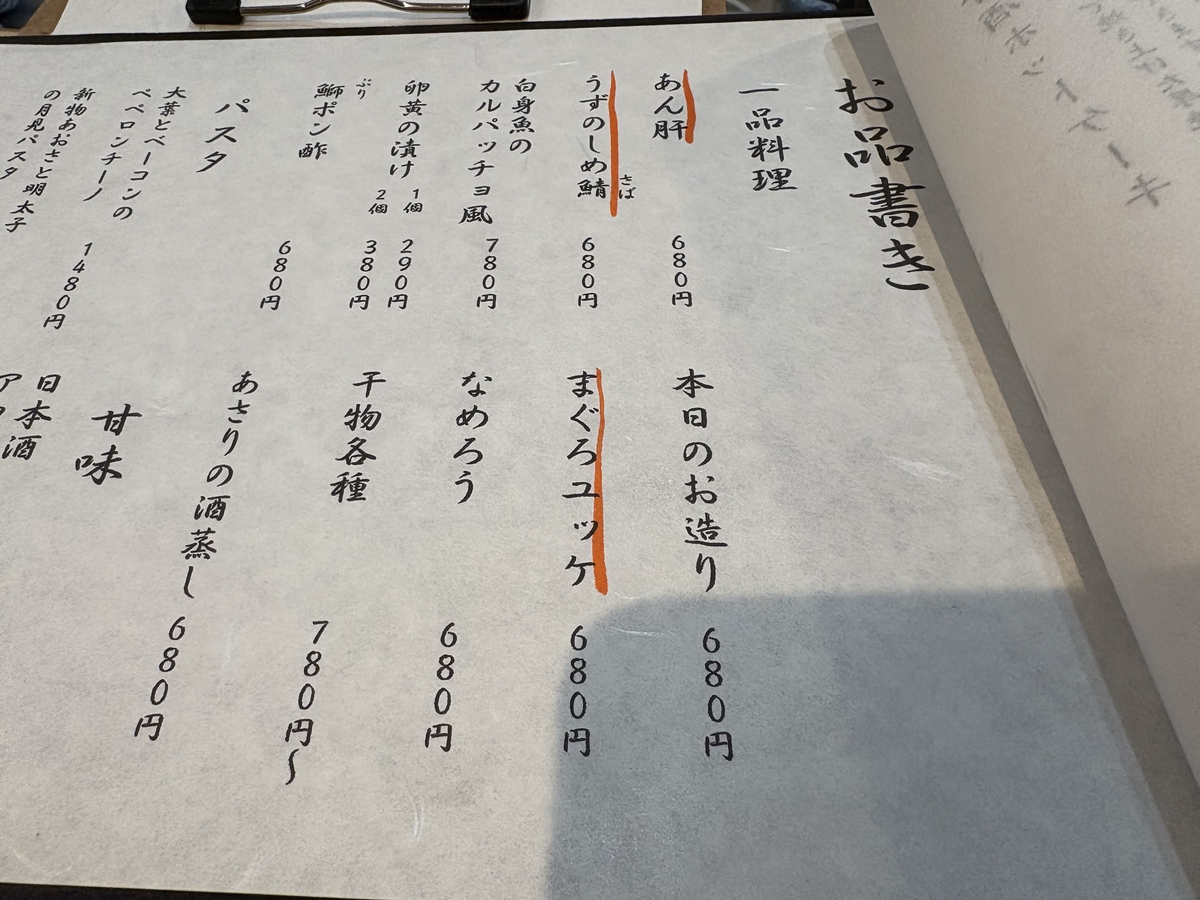 お品書き
一品料理
あん肝
680円
うずのしめ鯖
さば
680円
白身魚の
カルパッチョ風
780円
卵黄の漬け
1個
290円
2個
380円
鰤ポン酢
ぶり
680円
パスタ
大葉とベーコンの
ペペロンチーノ
1480円
新物あおさと明太子
の月見パスタ
本日のお造り
680円
まぐろユッケ
680円
なめろう
680円
干物各種
780円〜
あさりの酒蒸し
680円
甘味
日本酒